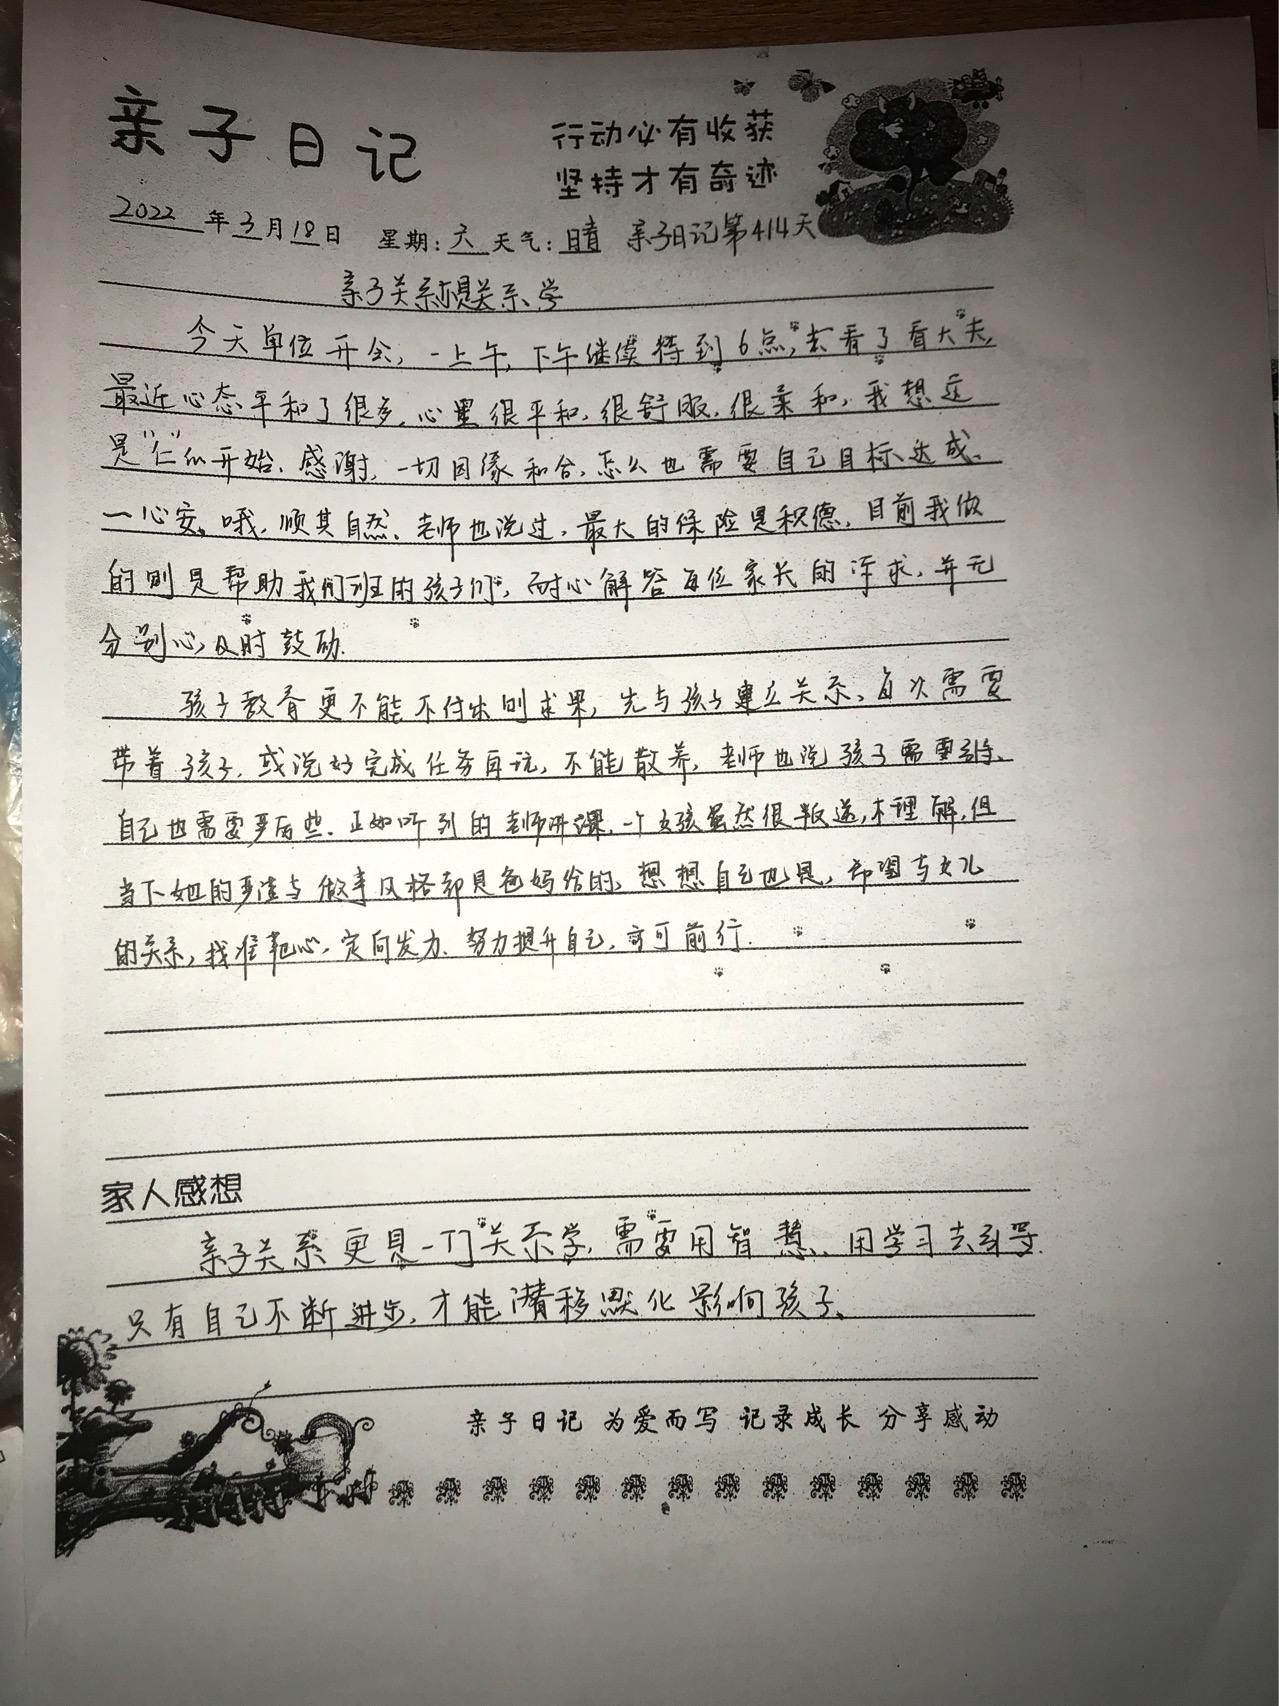 亲子日记
行动必有收获
坚持才有奇迹
2022年3月18日 星期:六 天气:晴 亲子日记第414天
亲子关系是关系学
今天单位开会,一上午,下午继续待到6点,去看了看大夫,
最近心态平和了很多,心里很平和,很舒服,很柔和,我想这
是"仁"的开始、感谢,一切因缘和合,怎么也需要自己目标达成、
一心安。哦,顺其自然、老师也说过,最大的保险是积德,目前我做
的则是帮助我们班的孩子们,耐心解答每位家长的诉求,并无
分别心,及时鼓励.
孩子教育更不能不付出则求果,先与孩子建立关系、每次需要
带着孩子,或说好完成任务再玩,不能散养,老师也说孩子需要引导、
自己也需要多后些.正如听到的老师讲课,一个女孩虽然很叛逆,不理解,但
当下她的生活与做事风格却是爸妈给的,想想自己也是,希望与女儿
的关系,找准靶心,定向发力、努力提升自己,方可前行.
家人感想
亲子关系更是一门关系学,需要用智慧、用学习去引导.
只有自己不断进步,才能潜移默化影响孩子、
亲子日记 为爱而写 记录成长 分享感动